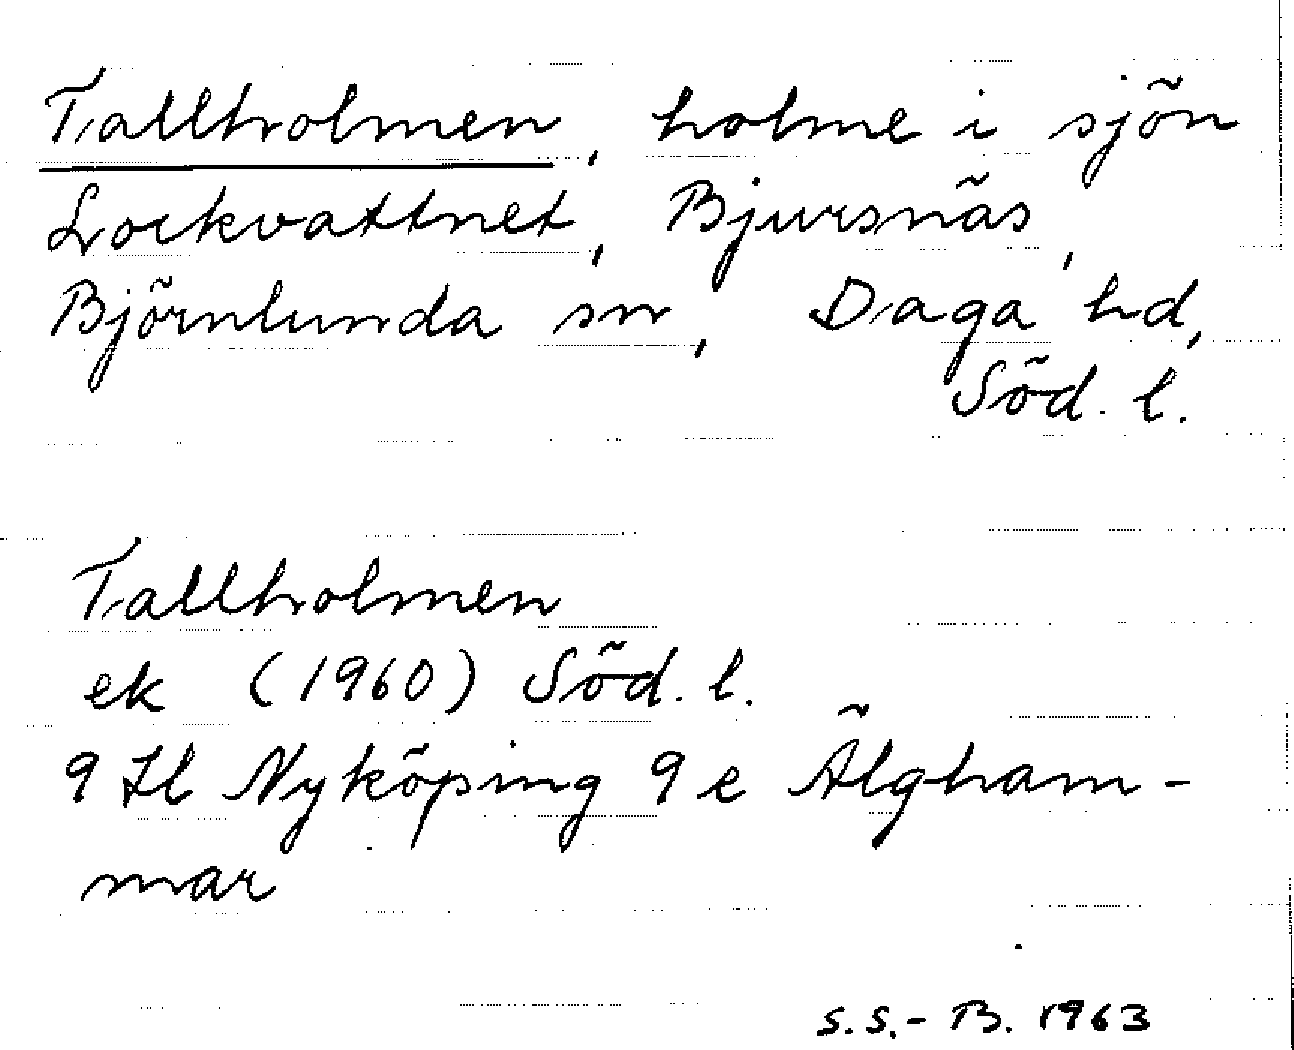 Tallholmen, holme i sjön
Lockvattnet, Bjursnäs,
Björnlunda sn, Daga hd,
Söd. l.
Tallholmen
ek (1960) Söd. l.
9 Nyköping 9 e Älgham-
mar
S.S.-B. 1963